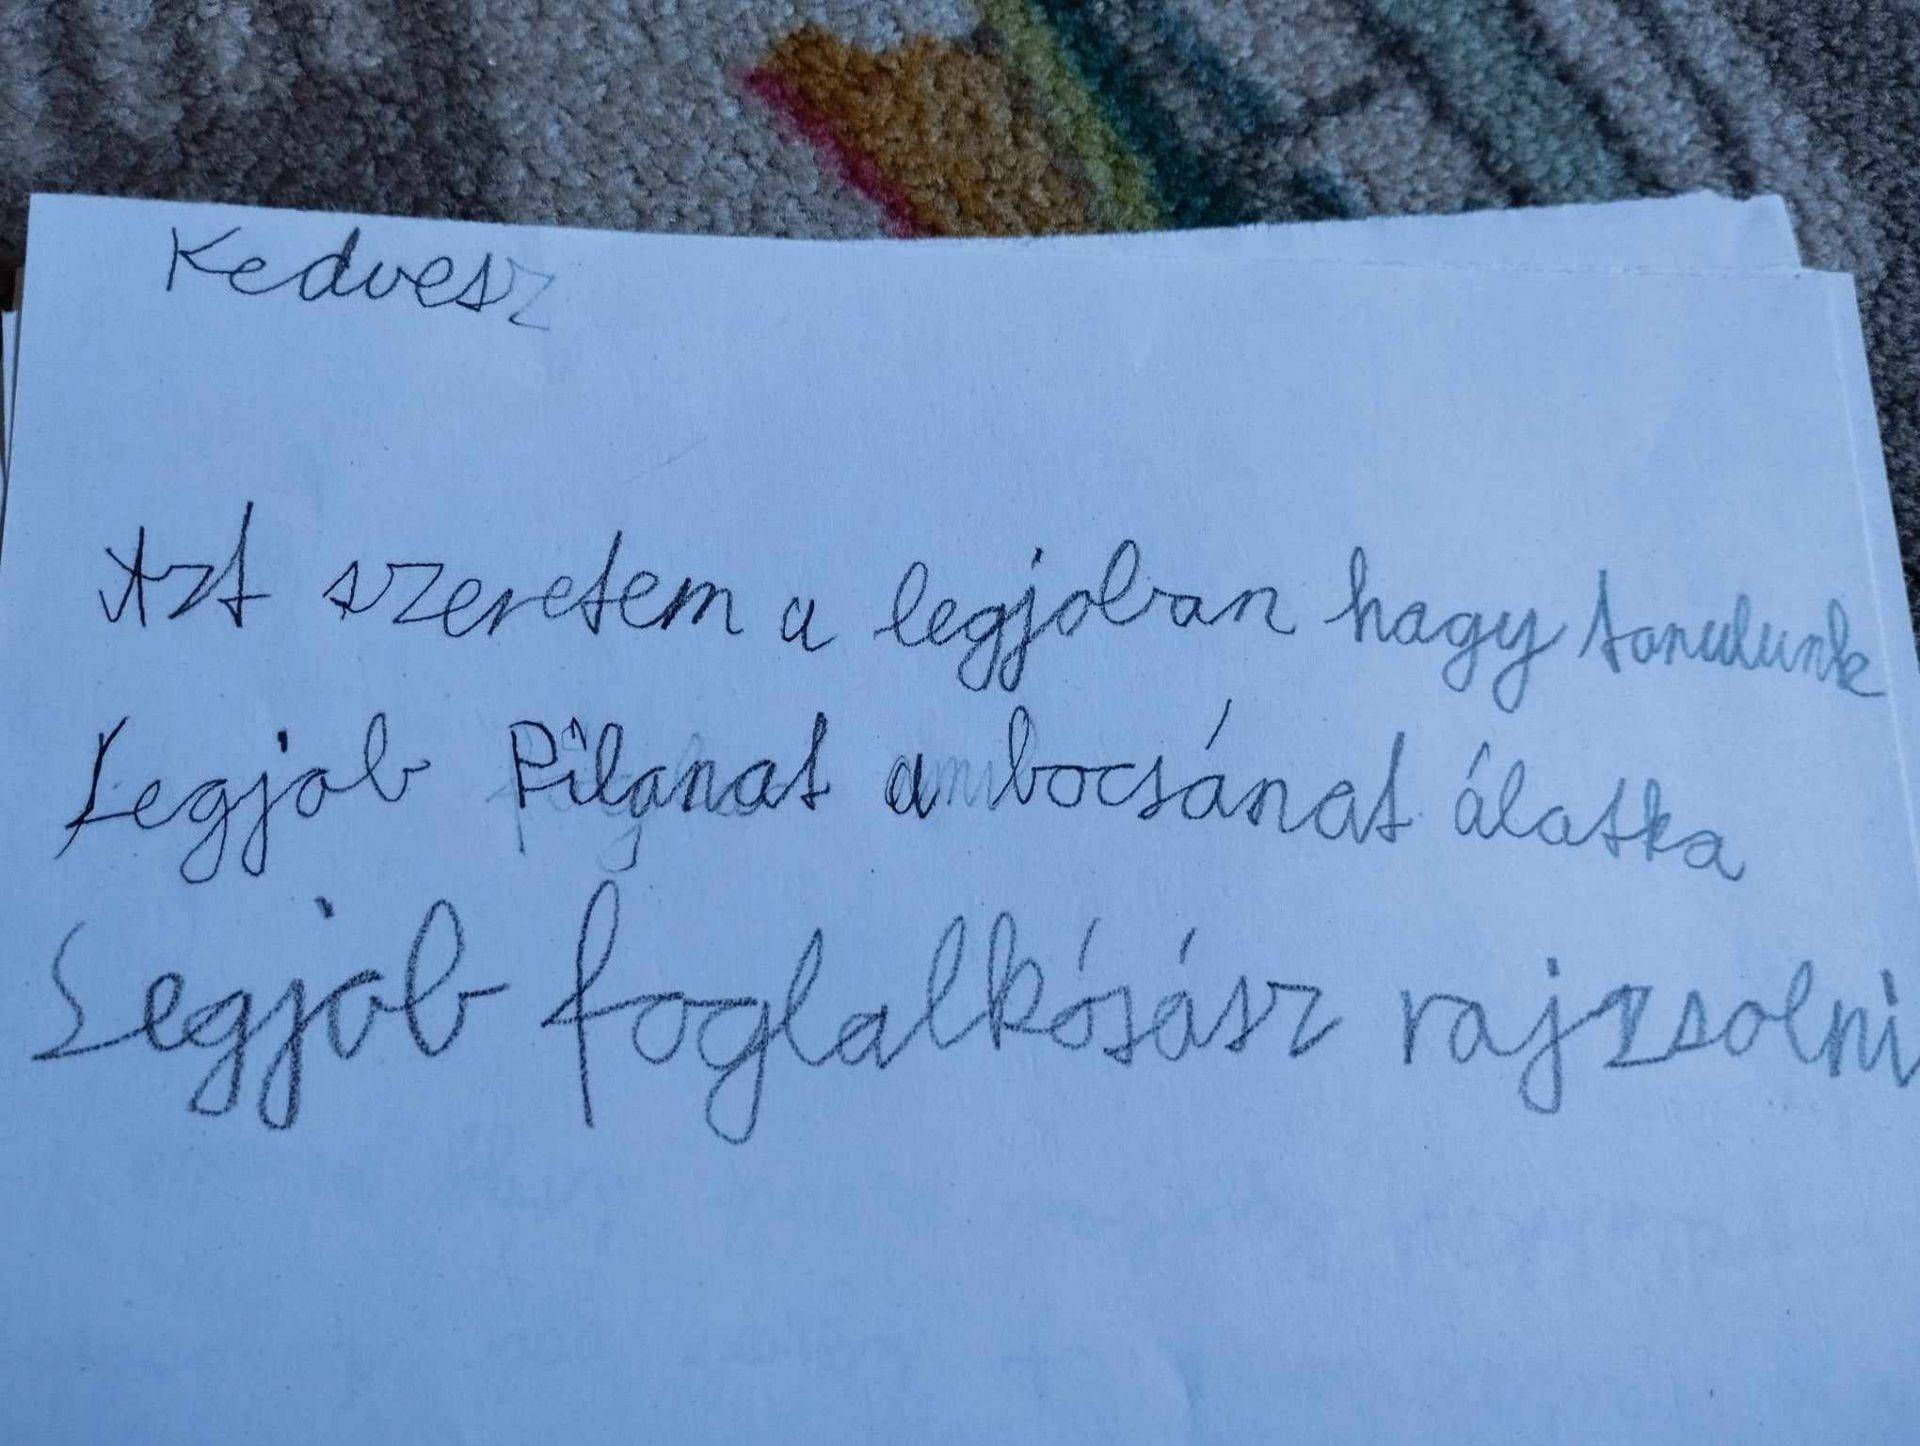 Kedvesz
Azt szeretem a legjoban hagy tanulunk
Legjob Pilanat a bocsánat álatka
Legjob foglalkósász rajzsolni